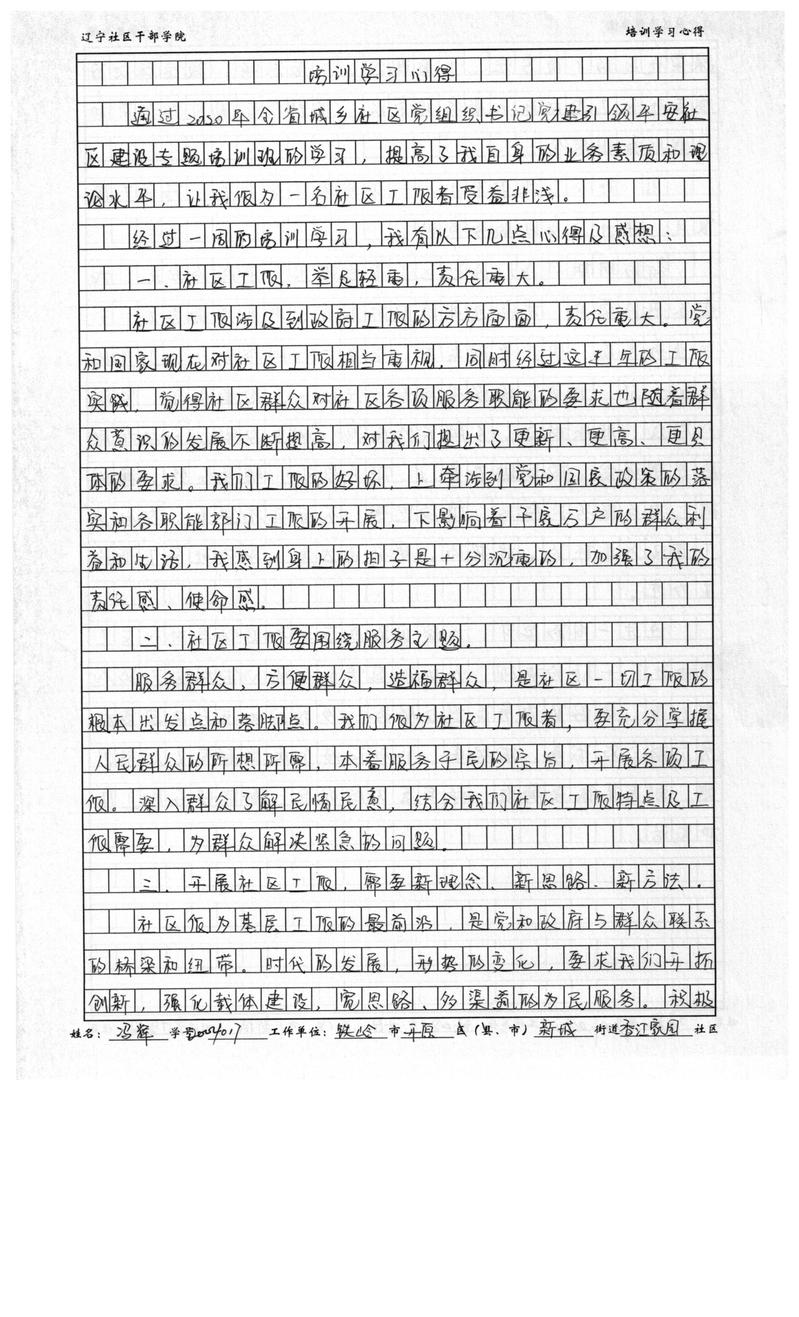 辽宁社区干部学院
培训学习心得
培训学习心得
通过2020年全省城乡社区党组织书记党建引领平安社
区建设专题培训班的学习，提高了我自身的业务素质和理
论水平，让我做为一名社区工作者受益非浅。
经过一周的培训学习，我有以下几点心得及感想：
一、社区工作，举足轻重，责任重大。
社区工作涉及到政府工作的方方面面，责任重大。党
和国家现在对社区工作相当重视，同时经过这半年的工作
实践，觉得社区群众对社区各项服务职能的要求也随着群
众意识的发展不断提高，对我们提出了更新、更高、更具
体的要求。我们工作的好坏，上牵涉到党和国家政策的落
实和各职能部门工作的开展，下影响着千家万户的群众利
益和生活，我感到身上的担子是十分沉重的，加强了我的
责任感、使命感。
二、社区工作要围绕服务主题。
服务群众，方便群众，造福群众，是社区一切工作的
根本出发点和落脚点。我们做为社区工作者，要充分掌握
人民群众的所想所需，本着服务于民的宗旨，开展各项工
作。深入群众了解民情民意，结合我们社区工作特点及工
作需要，为群众解决紧急的问题。
三、开展社区工作，需要新理念、新思路、新方法。
社区作为基层工作的最前沿，是党和政府与群众联系
的桥梁和纽带。时代的发展，形势的变化，要求我们开拓
创新，强化载体建设，宽思路、多渠道的为民服务。积极
姓名：冯辉 学号 工作单位：铁岭 市 开原 区（县、市） 新城 街道 香江家园 社区